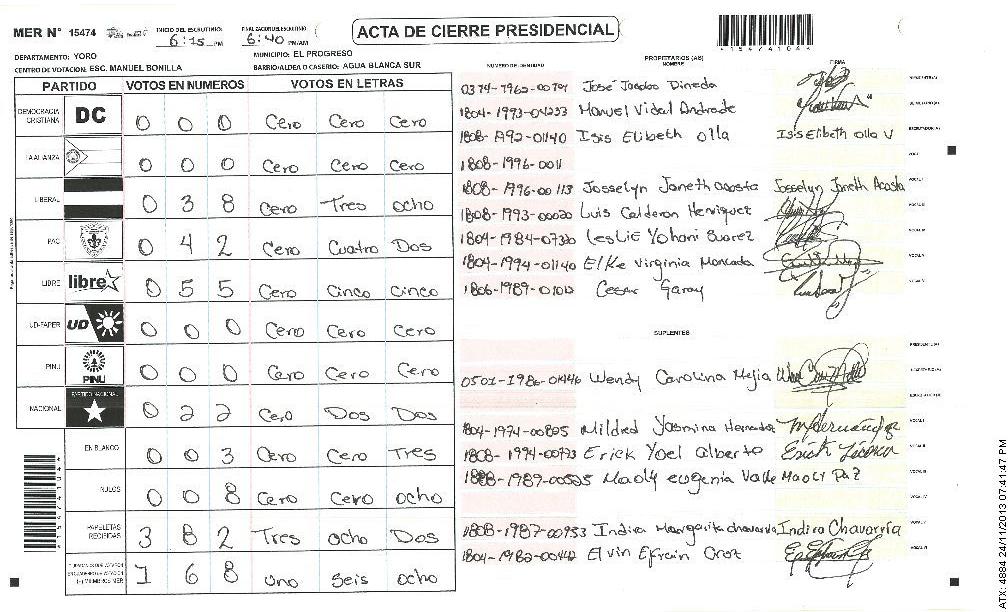 MER N° 15474 INICIO DEL ESCRUTINIO: 6:15 PM FINALIZACION DEL ESCRUTINIO: 6:40 PM/AM
ACTA DE CIERRE PRESIDENCIAL
DEPARTAMENTO: YORO MUNICIPIO: EL PROGRESO
CENTRO DE VOTACION: ESC. MANUEL BONILLA BARRIO/ALDEA O CASERIO: AGUA BLANCA SUR
PARTIDO VOTOS EN NUMEROS VOTOS EN LETRAS
DEMOCRACIA CRISTIANA DC 0 0 0 Cero Cero Cero
LA ALIANZA 0 0 0 Cero Cero Cero
LIBERAL 0 3 8 Cero Tres ocho
PAC 0 4 2 Cero Cuatro Dos
LIBRE libre 0 5 5 Cero Cinco Cinco
UD-FAPER UD 0 0 0 Cero Cero Cero
PINU PINU 0 0 0 Cero Cero Cero
NACIONAL PARTIDO NACIONAL 0 2 2 Cero Dos Dos
EN BLANCO 0 0 3 Cero Cero Tres
NULOS 0 0 8 Cero Cero ocho
PAPELETAS RECIBIDAS 3 8 2 Tres ocho Dos
(+) MIEMBROS MER 1 6 8 uno seis ocho
NUMERO DE IDENTIDAD PROPIETARIOS (AS) NOMBRE FIRMA
José Jacobo Pineda
1804-1993-04233 Manuel Vidal Andrade
1808-1992-01140 Isis Elibeth olla Isis Elibeth olla V
1808-1996-0011
1808-1996-00113 Josselyn Janeth acosta Josselyn Janeth Acosta
1808-1993-00020 Luis Calderon Henriquez
1804-1984-07330 Leslie Yohani Suarez
1804-1994-01140 Elke Virginia Moncada
1806-1989-01012 Cesar Garay
SUPLENTES
0501-1986-01446 Wendy Carolina Mejia
1804-1974-00805 Mildred Yasmina Hernandez
1808-1994-00773 Erick Yoel alberto Erick
1988-1989-00525 Maoly eugenia Valle Maoly Paz
1808-1987-00953 Indira Margarita chavarria Indira Chavarría
1804-1982-00442 Elvin Efrain Oroz
ATX: 4884 24/11/2013 07:41:47 PM